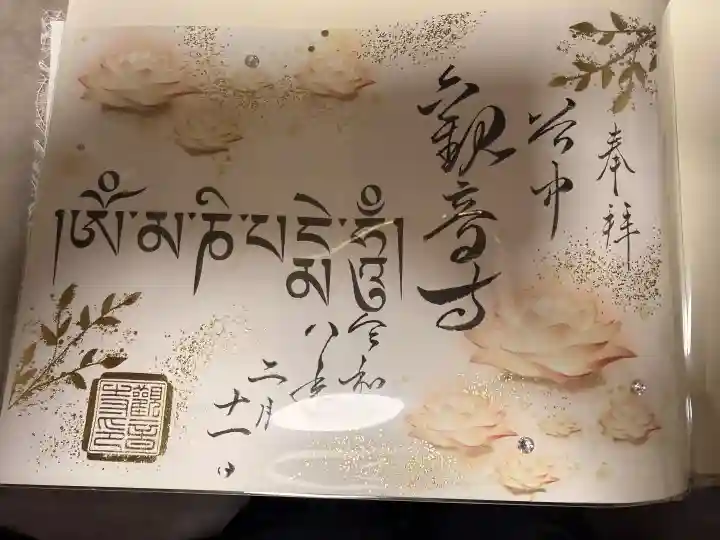 奉拝
谷中
觀音寺
༄ཨོཾ་མ་ཎི་པདྨེ་ཧཱུྃ།
令和
八年
二月
十一日
觀音寺印